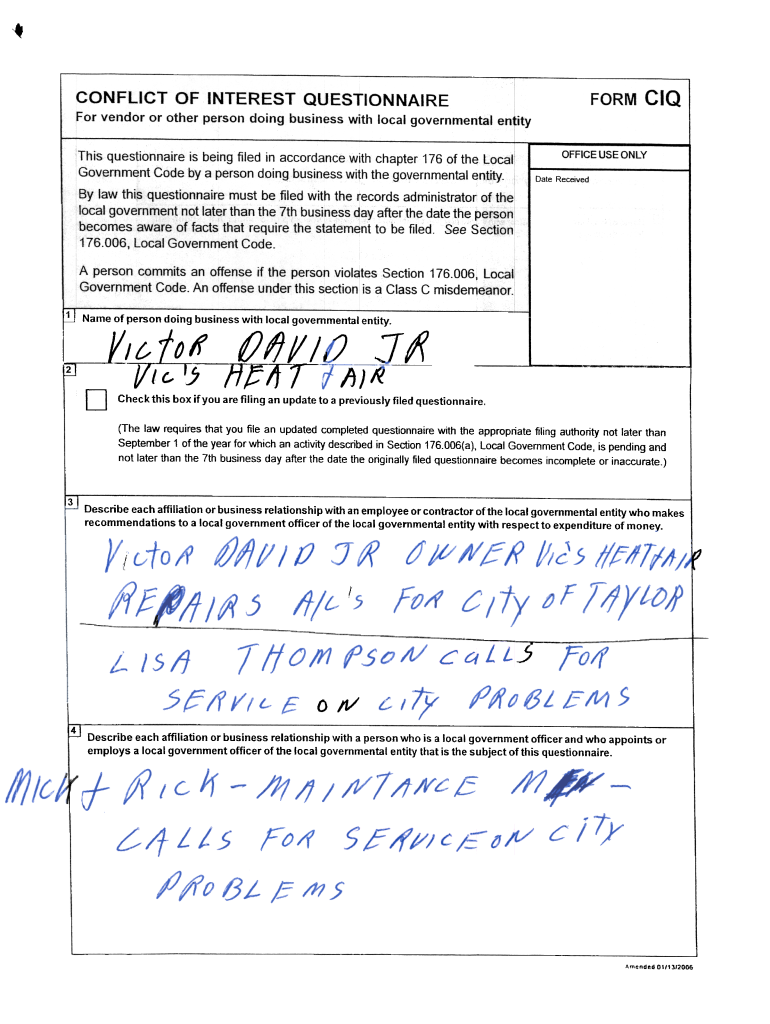 CONFLICT OF INTEREST QUESTIONNAIRE
FORM CIQ
For vendor or other person doing business with local governmental entity
This questionnaire is being filed in accordance with chapter 176 of the Local
Government Code by a person doing business with the governmental entity.
By law this questionnaire must be filed with the records administrator of the
local government not later than the 7th business day after the date the person
becomes aware of facts that require the statement to be filed. See Section
176.006, Local Government Code.
A person commits an offense if the person violates Section 176.006, Local
Government Code. An offense under this section is a Class C misdemeanor.
OFFICE USE ONLY
Date Received
1 Name of person doing business with local governmental entity.
VICTOR DAVID JR
VIC'S HEAT & AIR
2
Check this box if you are filing an update to a previously filed questionnaire.
(The law requires that you file an updated completed questionnaire with the appropriate filing authority not later than
September 1 of the year for which an activity described in Section 176.006(a), Local Government Code, is pending and
not later than the 7th business day after the date the originally filed questionnaire becomes incomplete or inaccurate.)
3 Describe each affiliation or business relationship with an employee or contractor of the local governmental entity who makes
recommendations to a local government officer of the local governmental entity with respect to expenditure of money.
VICTOR DAVID JR OWNER VIC'S HEAT & AIR
REPAIRS A/C'S FOR CITY OF TAYLOR
LISA THOMPSON CALLS FOR
SERVICE ON CITY PROBLEMS
4 Describe each affiliation or business relationship with a person who is a local government officer and who appoints or
employs a local government officer of the local governmental entity that is the subject of this questionnaire.
MICK & RICK - MAINTANCE MEN -
CALLS FOR SERVICE ON CITY
PROBLEMS
Amended 01/13/2006